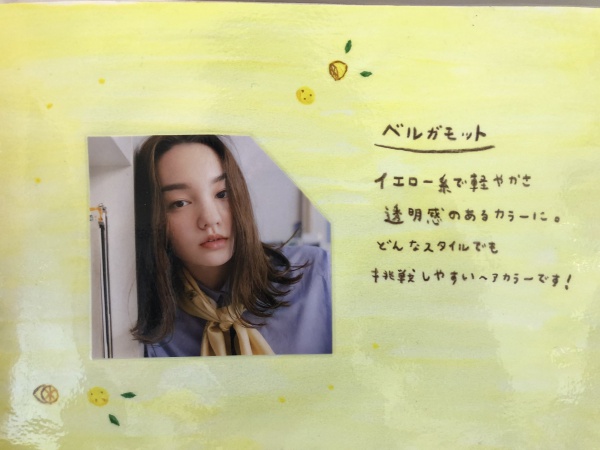 ベルガモット
イエロー系で軽やかさ
透明感のあるカラーに。
どんなスタイルでも
挑戦しやすいヘアカラーです!